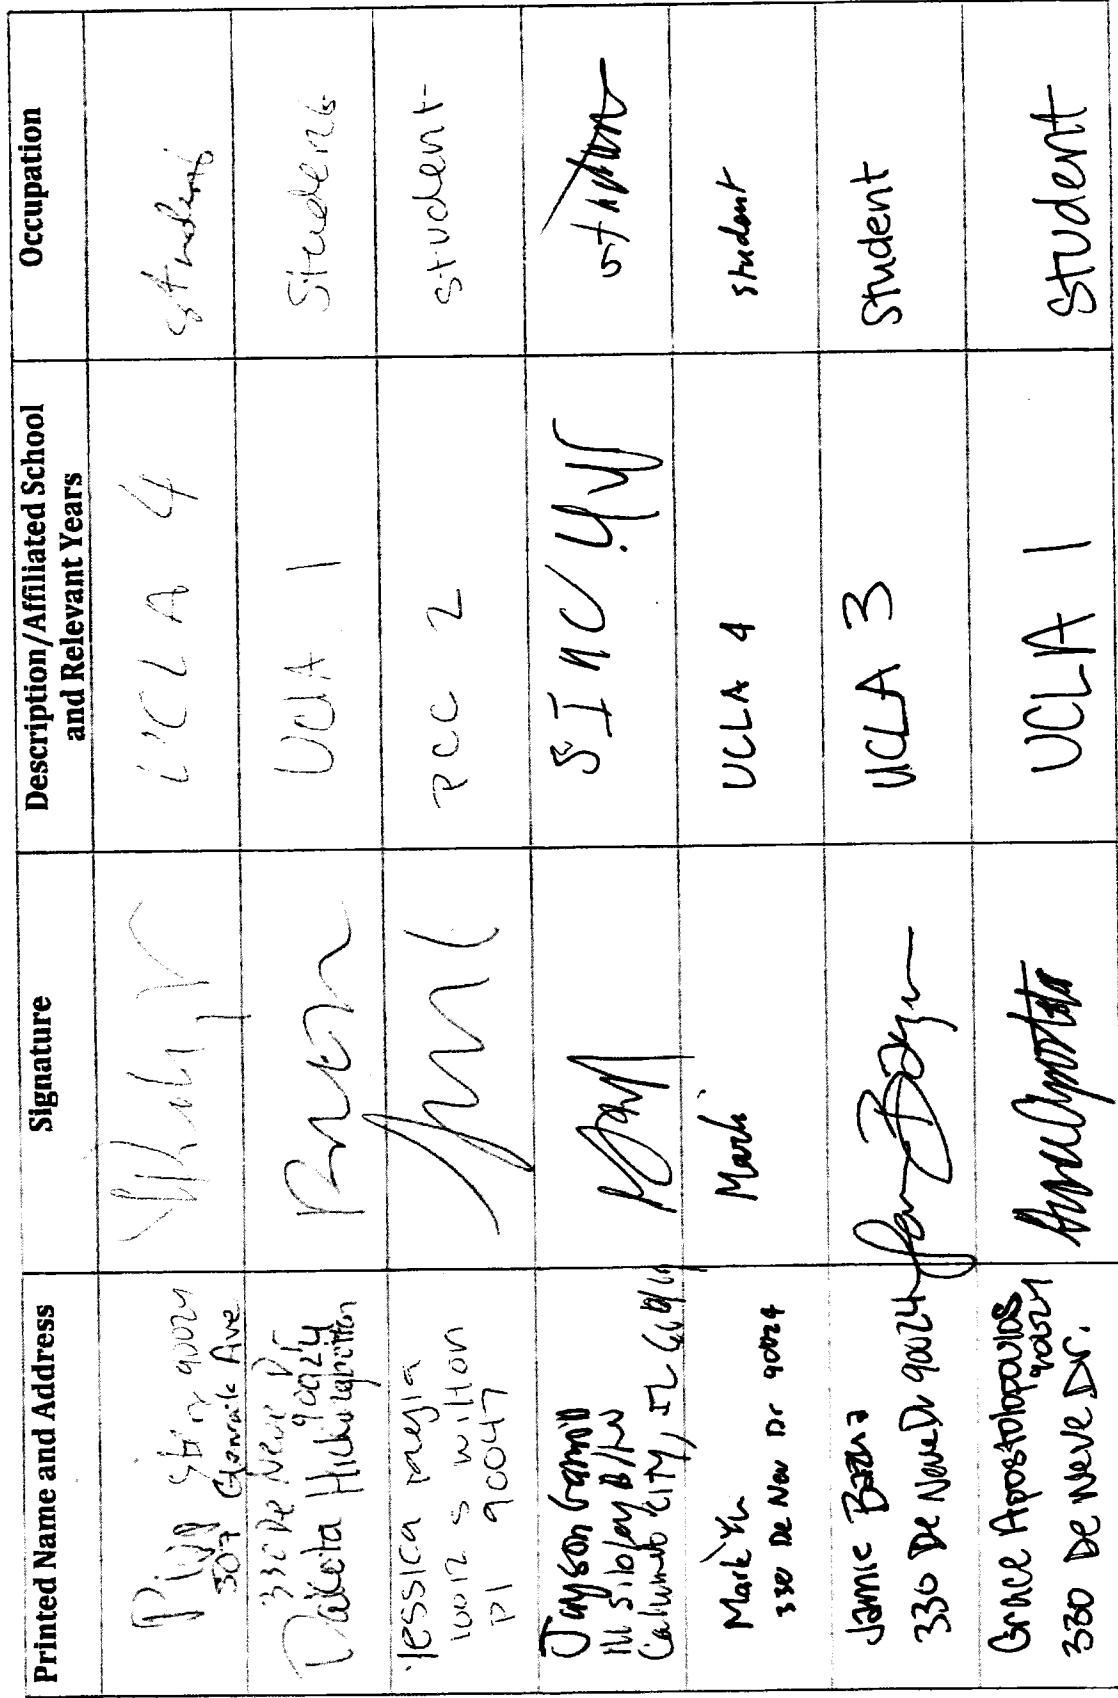 Printed Name and Address
Signature
Description/Affiliated School
and Relevant Years
Occupation
90024
307 Glenrock Ave
UCLA 4
Student
330 De Neve Dr
90024
Dakota
UCLA 1
Student
Yessica mejia
10012 S wilton
Pl 90047
PCC 2
Student
Jayson
student
Mark Yu
330 De Nev Dr 90024
Mark
UCLA 4
student
Jamie
330 De Neve Dr 90024
UCLA 3
Student
Grace Apostolopoulos
90024
330 De Neve Dr.
UCLA 1
Student